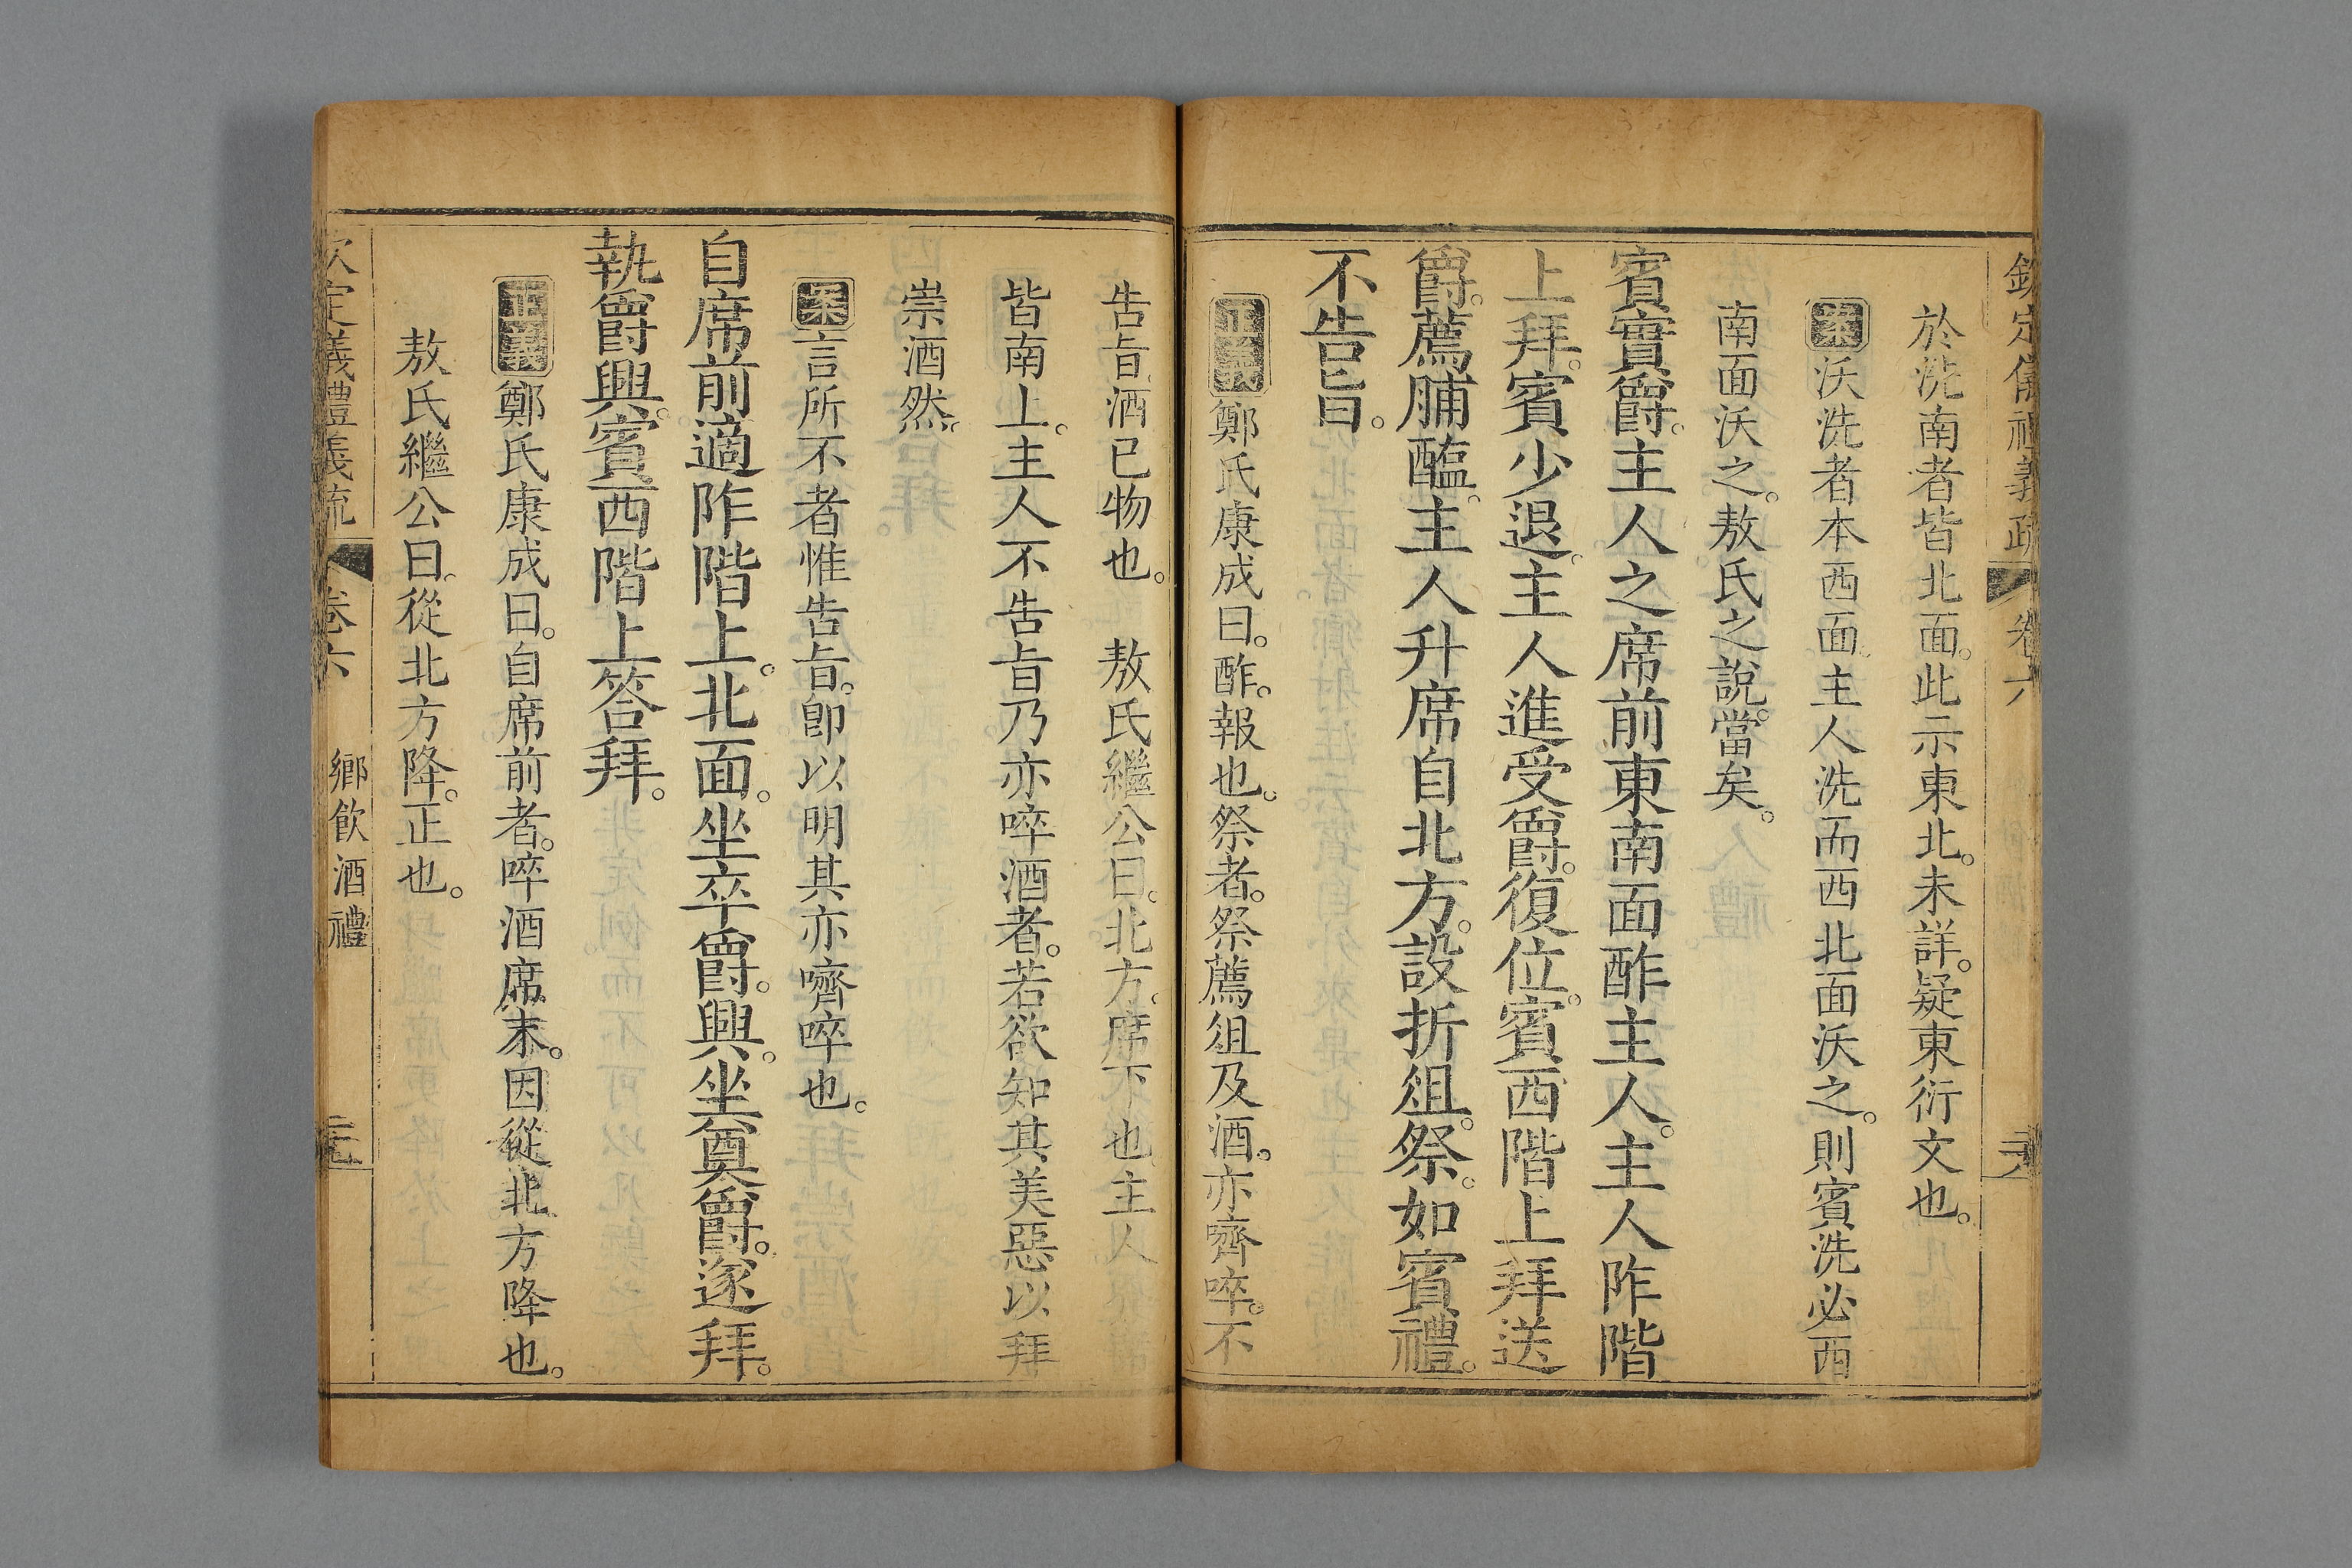 欽定儀禮義疏 卷六 二六
於洗南者皆北面。此示東北。未詳。疑東衍文也。
案沃洗者本西面。主人洗而西北面沃之。則賓洗必西
南面沃之。敖氏之說當矣。
賓實爵。主人之席前東南面酢主人。主人阼階
上拜。賓少退。主人進受爵。復位。賓西階上拜送
爵。薦脯醢。主人升席自北方。設折俎。祭如賓禮。
不告旨。
正義鄭氏康成曰。酢。報也。祭者。祭薦俎及酒。亦嚌啐。不
告旨。酒已物也。 敖氏繼公曰。北方。席下也。主人
皆南上。主人不告旨。乃亦啐酒者。若欲知其美惡以拜
崇酒然。
案言所不者惟告旨。卽以明其亦嚌啐也。
自席前適阼階上。北面。坐卒爵。興。坐奠爵。遂拜。
執爵興。賓西階上答拜。
正義鄭氏康成曰。自席前者。啐酒席末。因從北方降也。
敖氏繼公曰。從北方降。正也。
欽定儀禮義疏 卷六 鄉飲酒禮